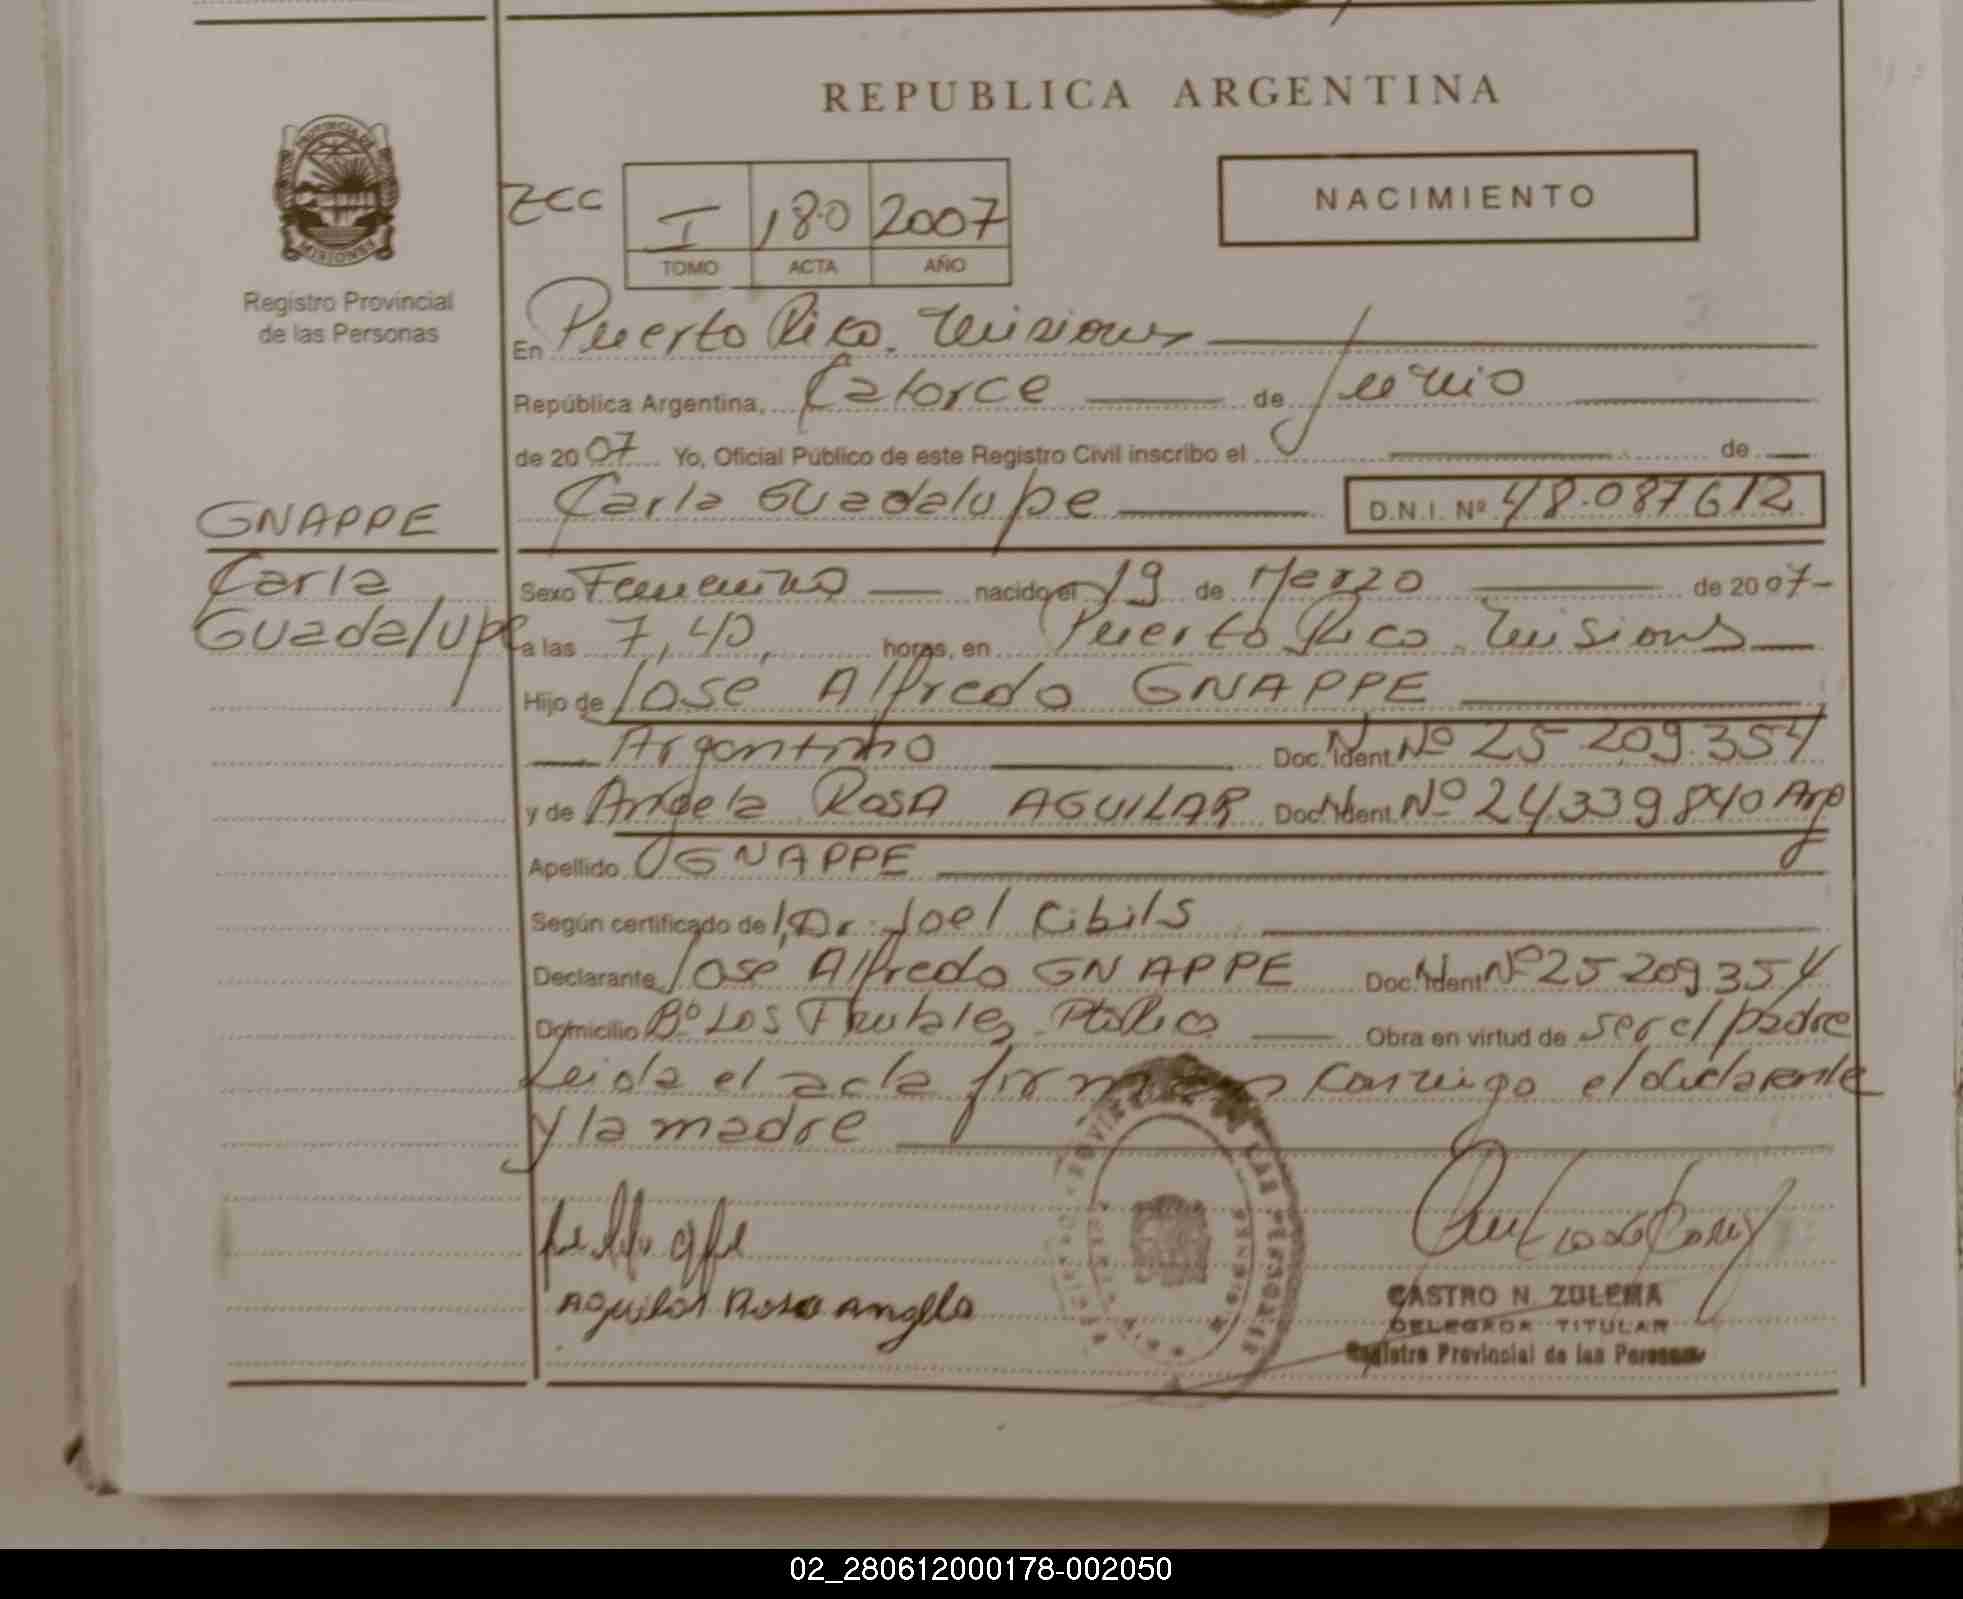 REPUBLICA ARGENTINA
PROVINCIA DE
MISIONES
Registro Provincial
de las Personas
ZCC
I 180 2007
TOMO ACTA AÑO
NACIMIENTO
En Puerto Rico. Misiones
República Argentina, Catorce de Junio
de 2007 Yo, Oficial Público de este Registro Civil inscribo el de
Carla Guadalupe D.N.I. Nº 48.087612
GNAPPE
Carla
Guadalupe
Sexo Femenino nacido el 19 de Marzo de 2007-
a las 7,40, horas, en Puerto Rico. Misiones
Hijo de Jose Alfredo GNAPPE
Argentino Doc. Ident. Nº 25.209.354
y de Angela Rosa AGUILAR Doc. Ident. Nº 24.339.840 Arg
Apellido GNAPPE
Según certificado de l, Dr. Joel Cibils
Declarante Jose Alfredo GNAPPE Doc. Ident. Nº 25 209 354
Domicilio Bº Los Pto Rico Obra en virtud de ser el padre
Leida el acta firman conmigo el declarante
y la madre
Aguilar Rosa Angela
CASTRO N. ZULEMA
DELEGADA TITULAR
Registro Provincial de las Personas
02_280612000178-002050